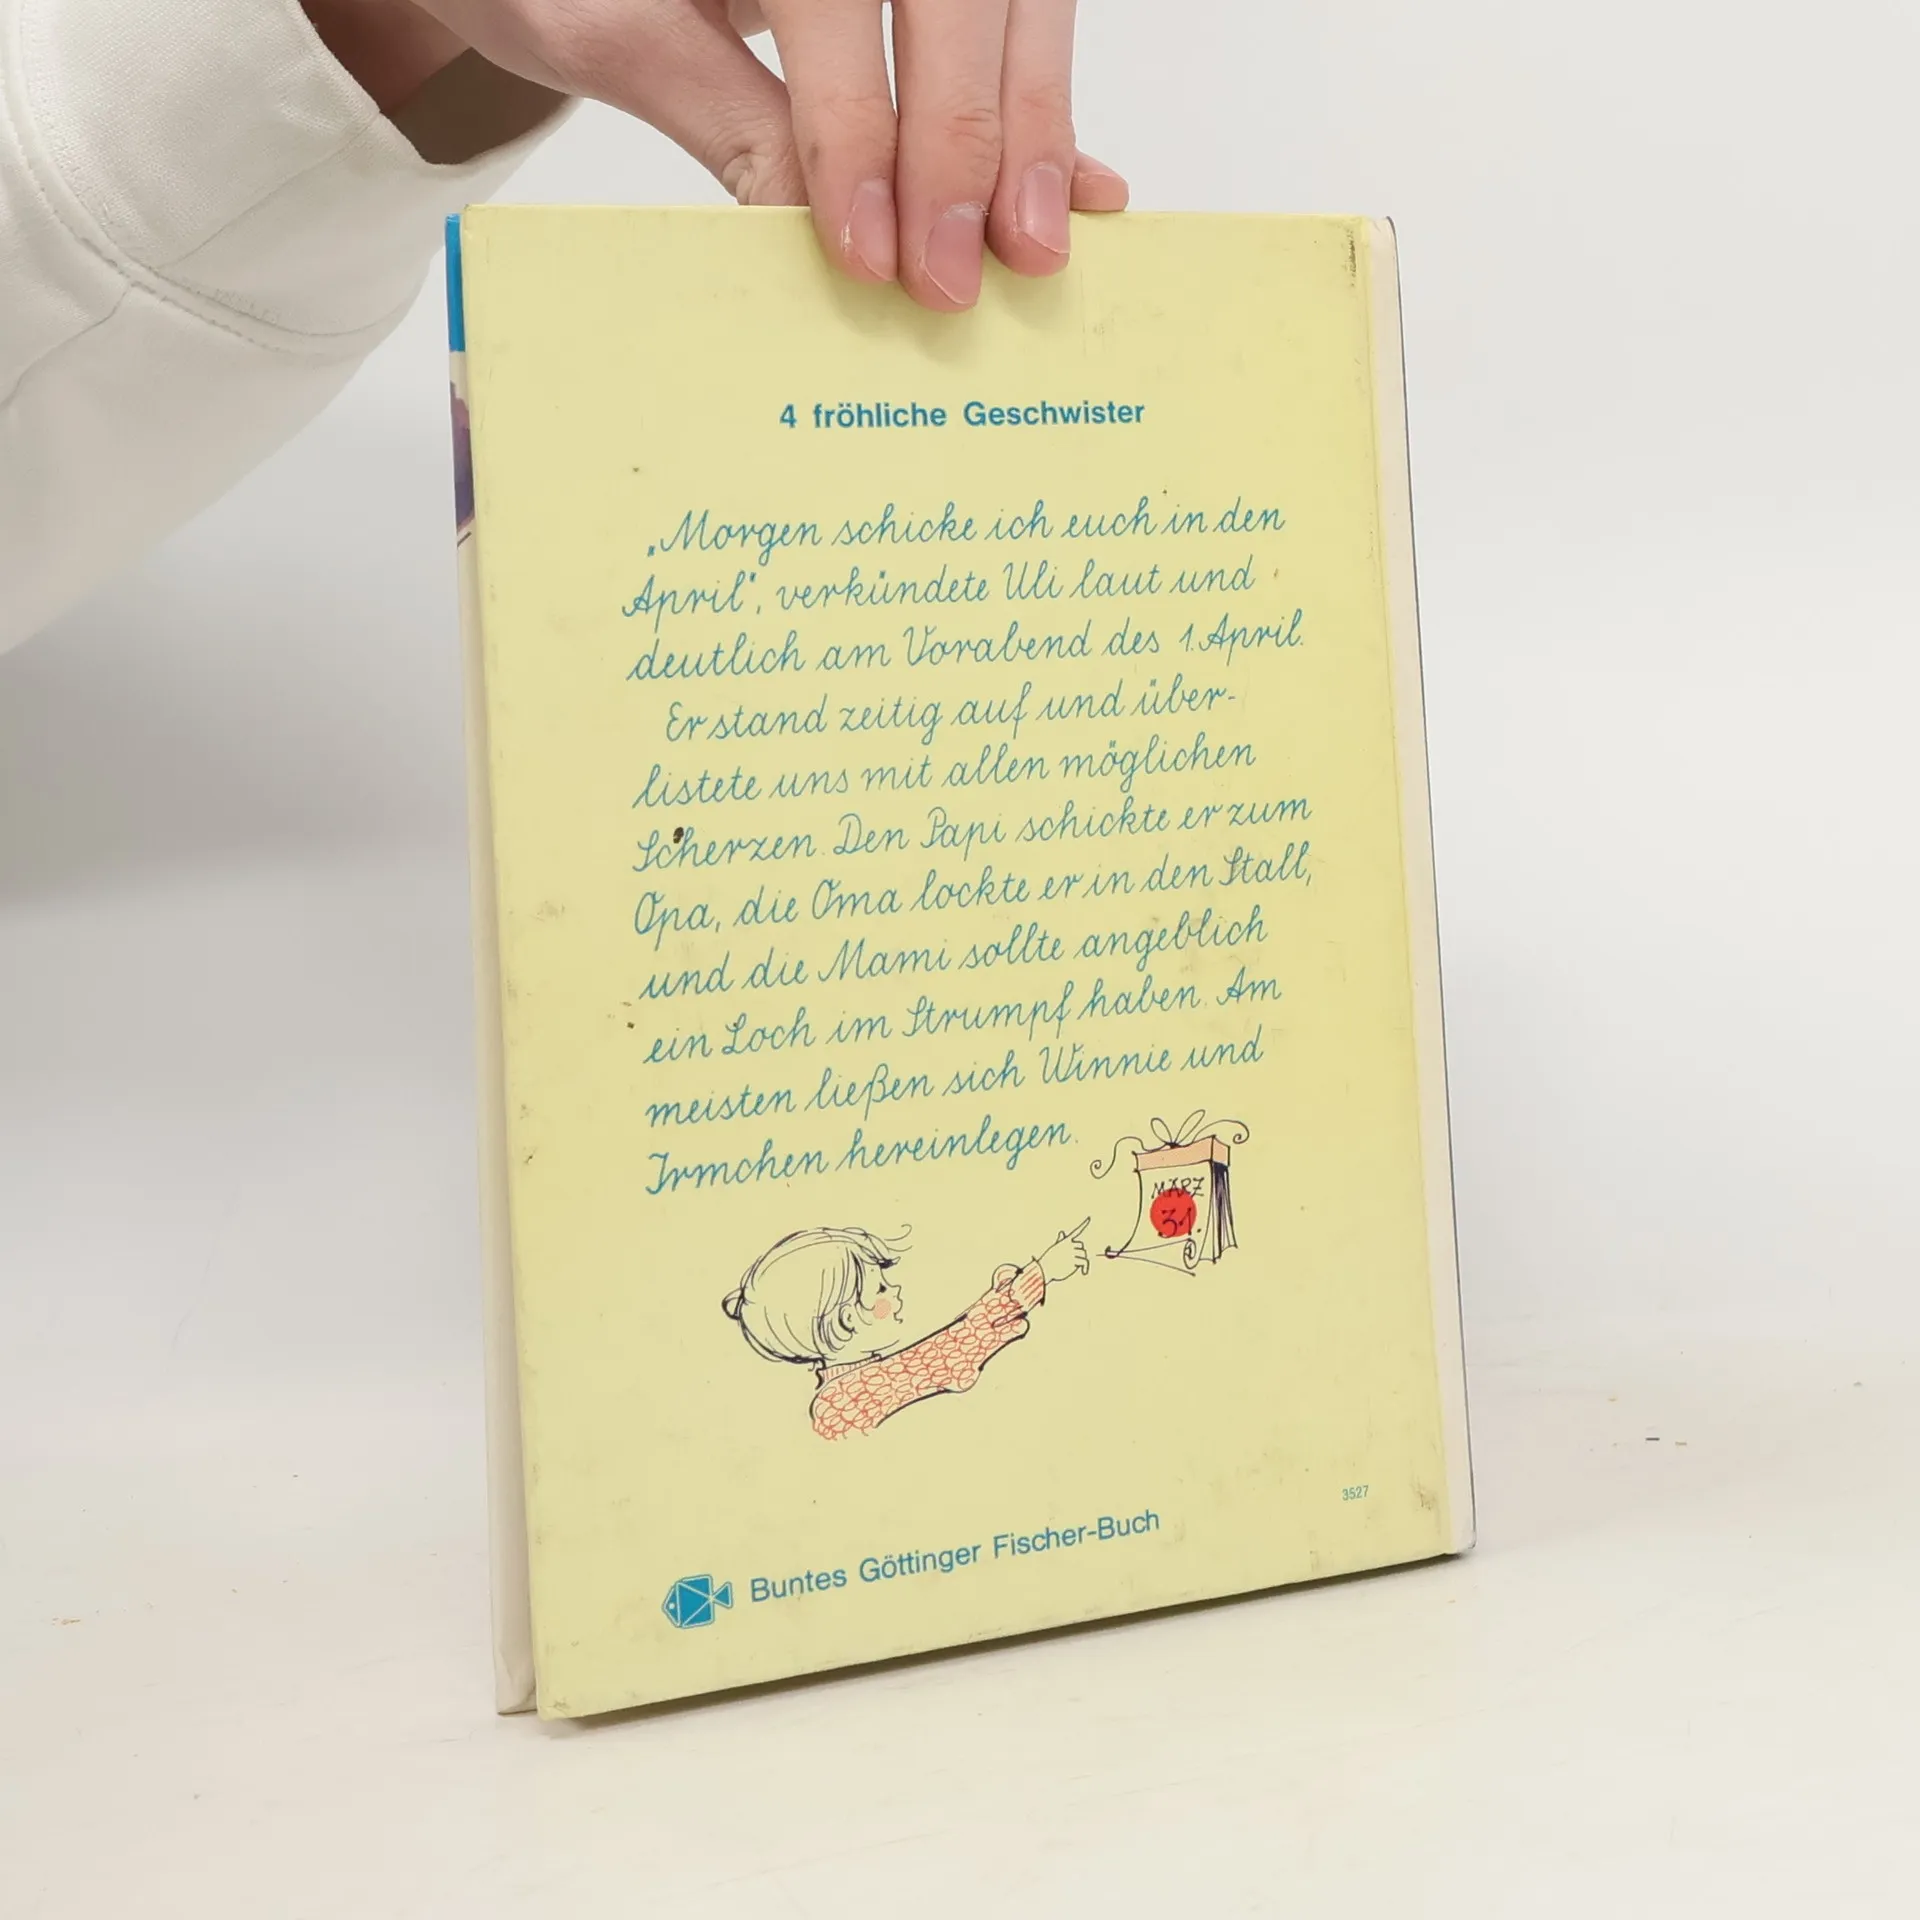 4 fröhliche Geschwister
„Morgen schicke ich euch in den
April“, verkündete Uli laut und
deutlich am Vorabend des 1. April.
Er stand zeitig auf und über-
listete uns mit allen möglichen
Scherzen. Den Papi schickte er zum
Opa, die Oma lockte er in den Stall,
und die Mami sollte angeblich
ein Loch im Strumpf haben. Am
meisten ließen sich Winnie und
Irmchen hereinlegen.
MÄRZ
31.
3527
Buntes Göttinger Fischer-Buch